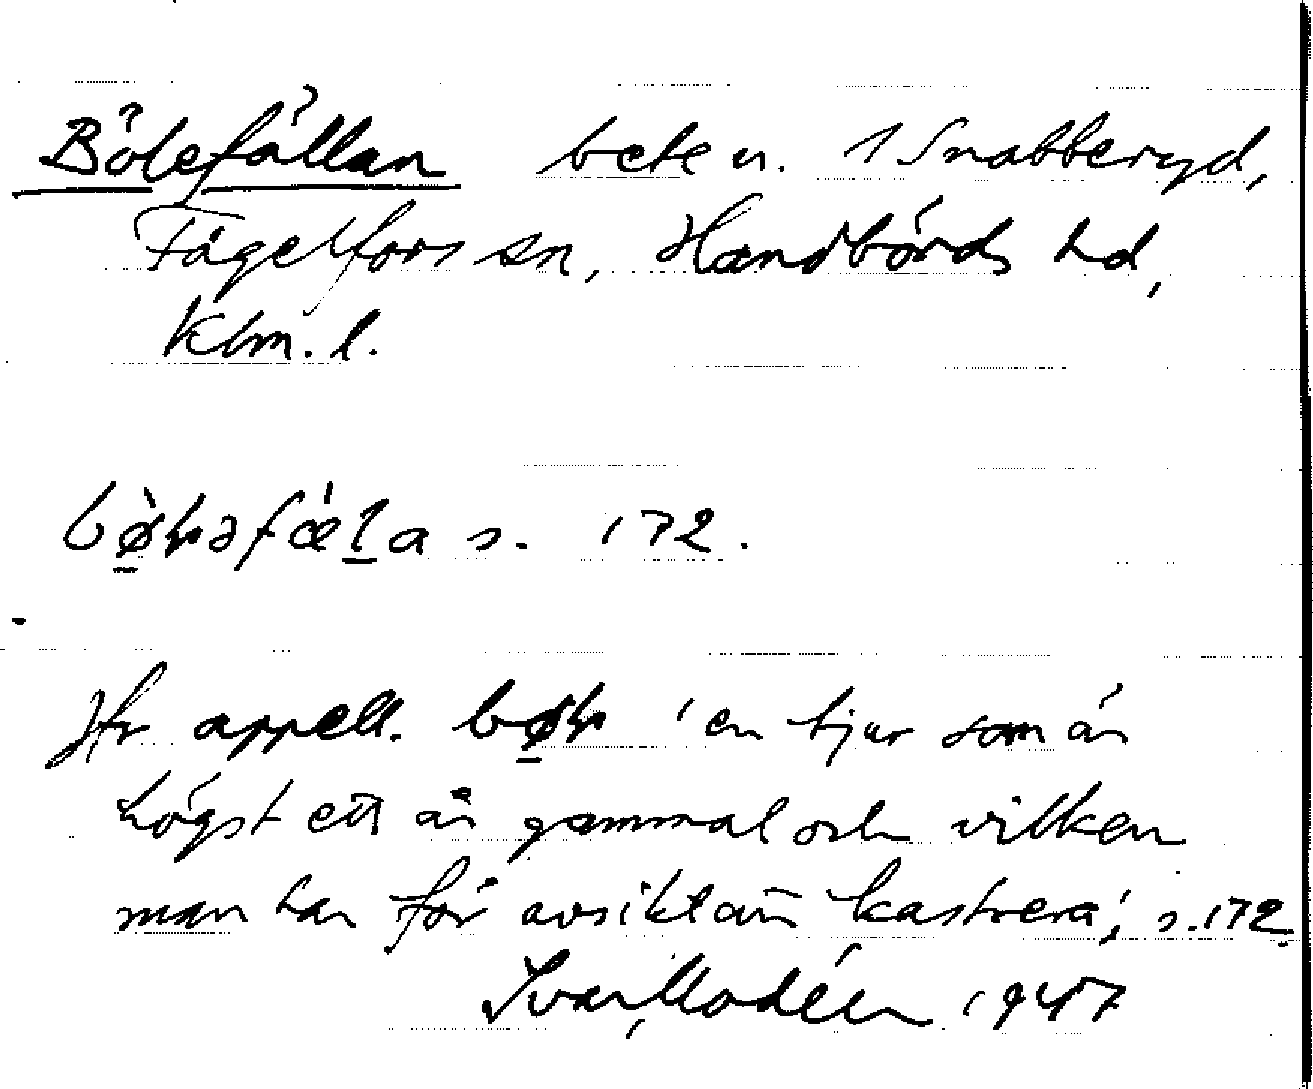 Bölefällan beten. i Snabberyd,
Fågelfors sn, Handbörds hd,
Klm. l.
s. 172.
Jfr appell. 'en tjur som är
högst ett år gammal och vilken
man har för avsikt att kastrera', s. 172
Ivar Modéer 1947